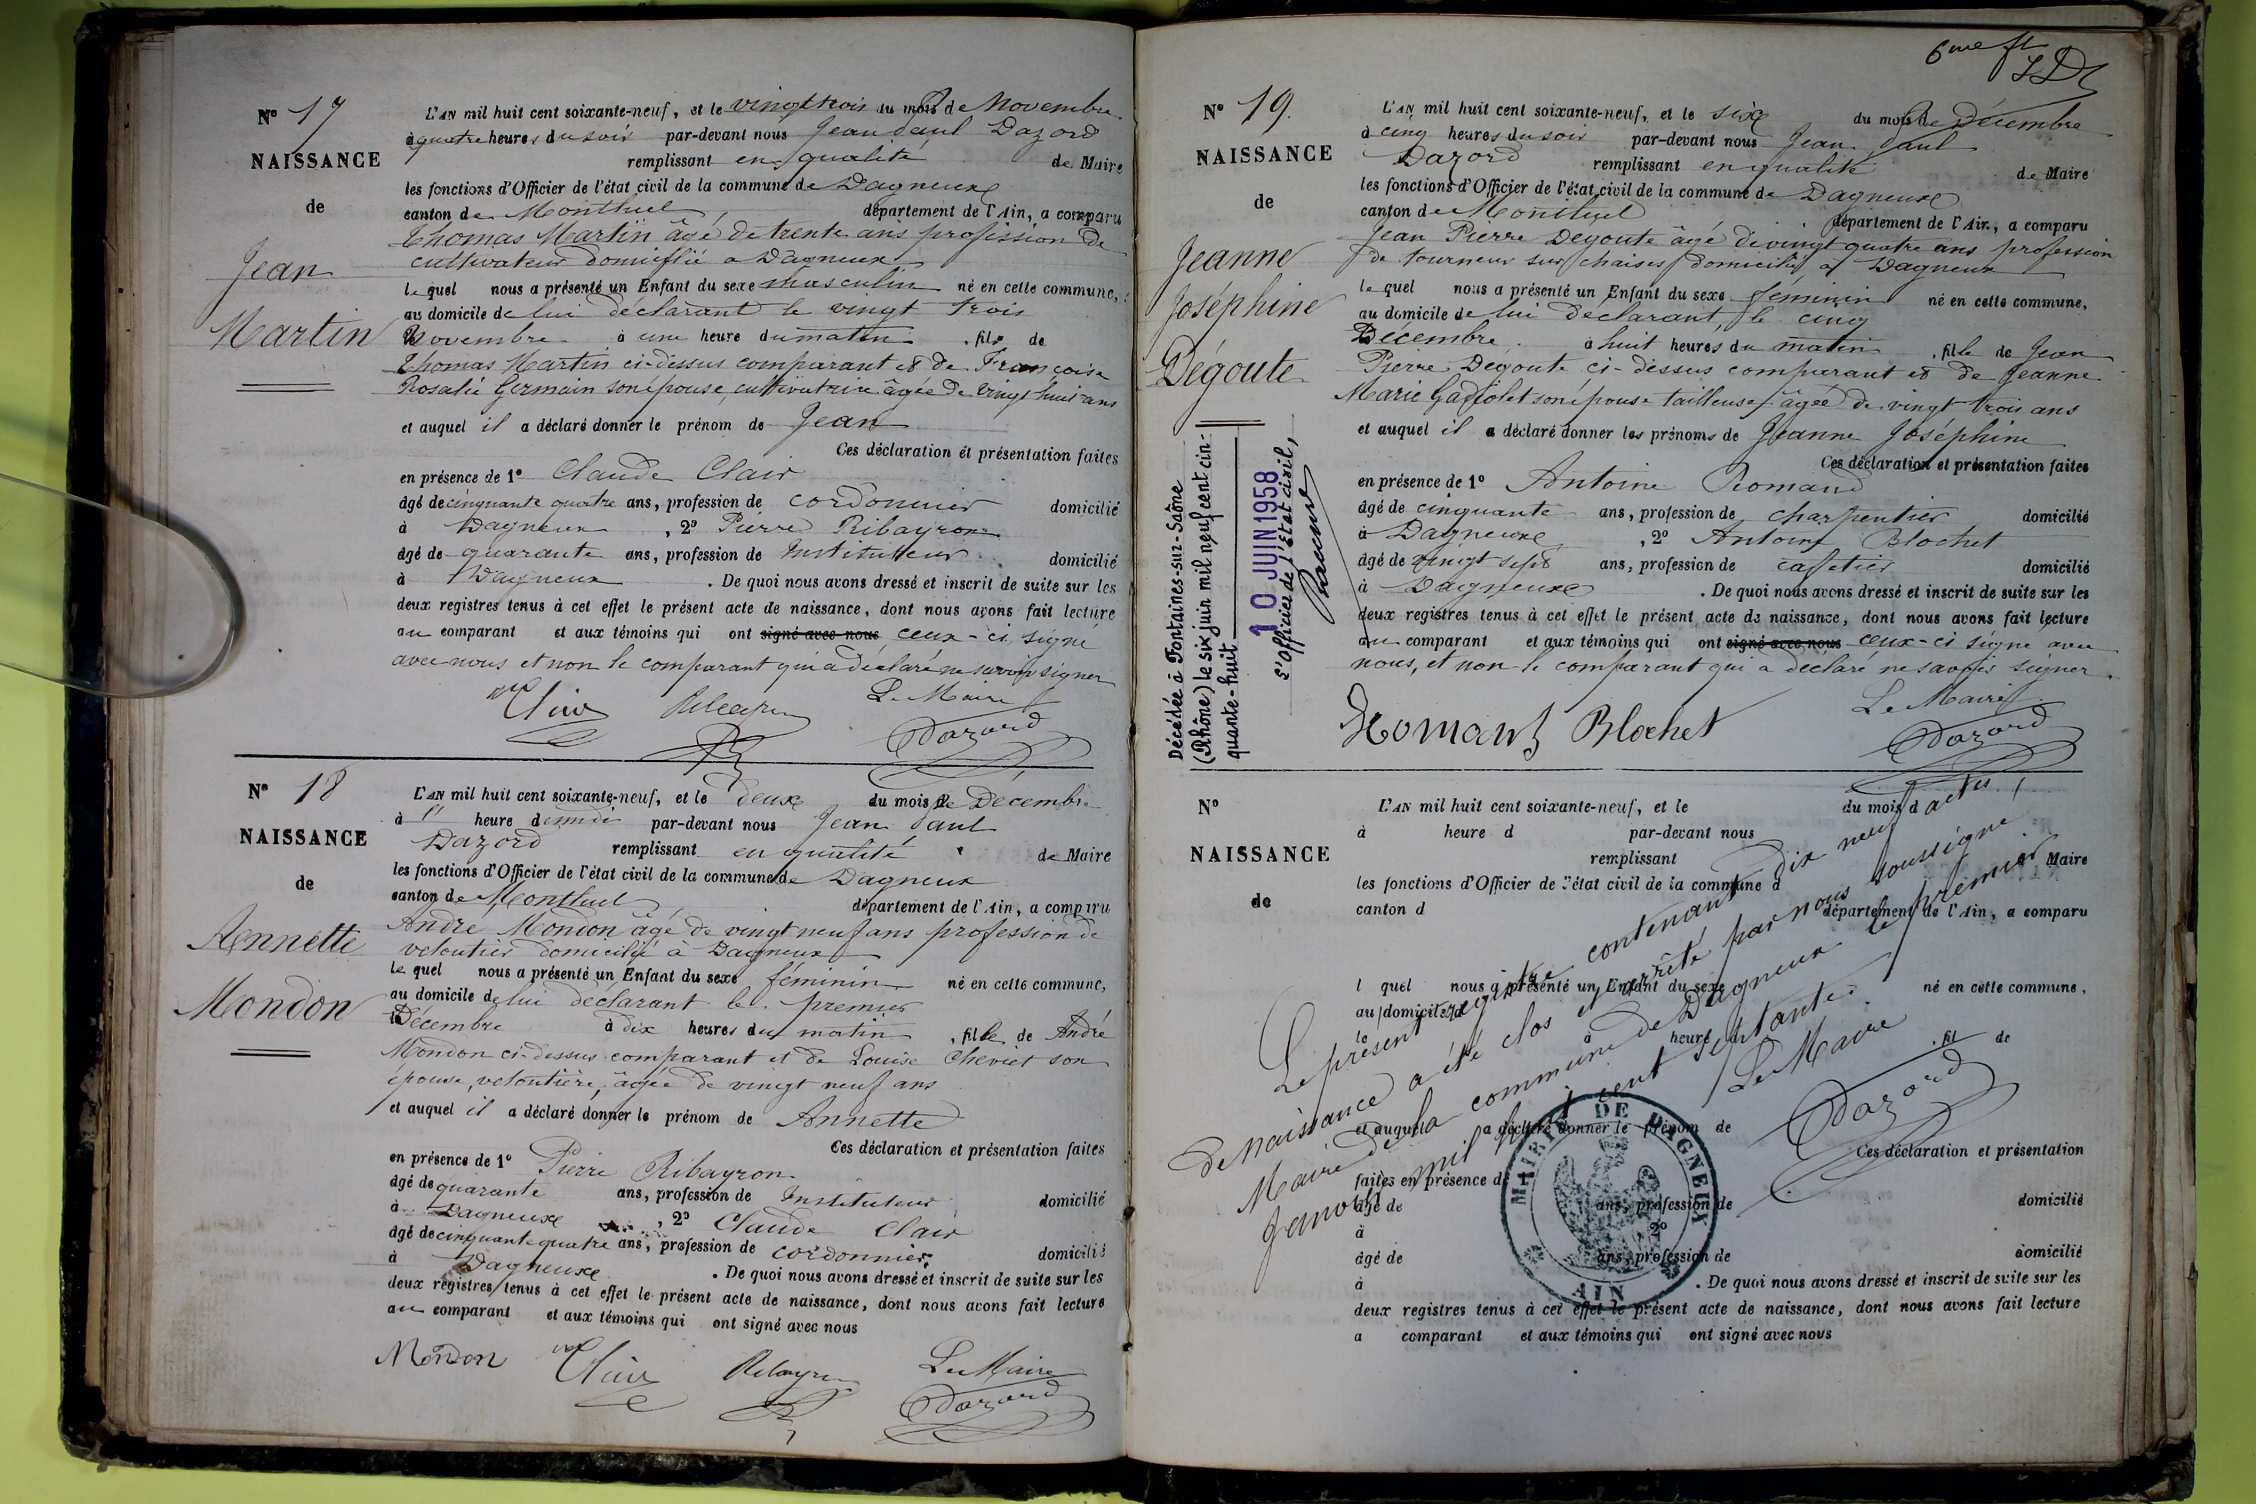 Nº 17
NAISSANCE
de
Jean
Martin
L'AN mil huit cent soixante-neuf, et le vingt trois du mois de Novembre
à quatre heures du soir par-devant nous Jean Paul Dazord
remplissant en qualité de Maire
les fonctions d'Officier de l'état civil de la commune de Dagneux
canton de Montluel département de l'Ain, a comparu
Thomas Martin âgé de trente ans profission de
cultivateur domicilié a Dagneux
le quel nous a présenté un Enfant du sexe masculin né en cette commune,
au domicile de lui déclarant le vingt trois
Novembre à une heure du matin , fils de
Thomas Martin ci-dessus comparant et de Françoise
Rosalie Germain son épouse, cultivatrice âgée de vingt huit ans
et auquel il a déclaré donner le prénom de Jean
Ces déclaration et présentation faites
en présence de 1º Claude Clair
âgé de cinquante quatre ans, profession de cordonnier domicilié
à Dagneux , 2º Pierre Ribayron
âgé de quarante ans, profession de Instituteur domicilié
à Dagneux . De quoi nous avons dressé et inscrit de suite sur les
deux registres tenus à cet effet le présent acte de naissance, dont nous avons fait lecture
au comparant et aux témoins qui ont signé avec nous ceux-ci signé
avec nous et non le comparant qui a déclaré ne savoir signer
Clair Ribayron Le Maire
Dazord
Nº 18
NAISSANCE
de
Annette
Mondon
L'AN mil huit cent soixante-neuf, et le deux du mois de Décembre
à heure de midi par-devant nous Jean Paul
Dazord remplissant en qualité de Maire
les fonctions d'Officier de l'état civil de la commune de Dagneux
canton de Montluel département de l'Ain, a comparu
André Mondon âgé de vingt neuf ans profession de
veloutier domicilié à Dagneux
le quel nous a présenté un Enfant du sexe féminin né en cette commune,
au domicile de lui déclarant le premier
Décembre à dix heures du matin , fille de André
Mondon ci-dessus comparant et de Louise Cheviet son
épouse, veloutière, âgée de vingt neuf ans
et auquel il a déclaré donner le prénom de Annette
Ces déclaration et présentation faites
en présence de 1º Pierre Ribayron
âgé de quarante ans, profession de Instituteur domicilié
à Dagneux , 2º Claude Clair
âgé de cinquante quatre ans, profession de cordonnier domicilié
à Dagneux . De quoi nous avons dressé et inscrit de suite sur les
deux registres tenus à cet effet le présent acte de naissance, dont nous avons fait lecture
au comparant et aux témoins qui ont signé avec nous
Mondon Clair Ribayron Le Maire
Dazord
6me ft
Nº 19.
NAISSANCE
de
Jeanne
Joséphine
Dégoute
Décédée à Fontaines-sur-Saône
(Rhône) le six juin mil neuf cent cin-
quante-huit
10 JUIN 1958
L'Officier de l'Etat civil,
L'AN mil huit cent soixante-neuf, et le six du mois de Décembre
à cinq heures du soir par-devant nous Jean Paul
Dazord remplissant en qualité de Maire
les fonctions d'Officier de l'état civil de la commune de Dagneux
canton de Montluel département de l'Ain, a comparu
Jean Pierre Degoute âgé de vingt quatre ans profession
de tourneur sur chaises domicilié à Dagneux
le quel nous a présenté un Enfant du sexe féminin né en cette commune,
au domicile de lui déclarant, le cinq
Décembre à huit heures du matin , fille de Jean
Pierre Dégoute ci-dessus comparant et de Jeanne
Marie son épouse tailleuse âgée de vingt trois ans
et auquel il a déclaré donner les prénoms de Jeanne Joséphine
Ces déclaration et présentation faites
en présence de 1º Antoine Romand
âgé de cinquante ans, profession de charpentier domicilié
à Dagneux , 2º Antoine Blochet
âgé de vingt sept ans, profession de cafetier domicilié
à Dagneux . De quoi nous avons dressé et inscrit de suite sur les
deux registres tenus à cet effet le présent acte de naissance, dont nous avons fait lecture
au comparant et aux témoins qui ont signé avec nous ceux-ci signé avec
nous, et non le comparant qui a déclaré ne savoir signer.
Romand Blochet Le Maire
Dazord
Nº
NAISSANCE
de
L'AN mil huit cent soixante-neuf, et le du mois d
à heure d par-devant nous
remplissant Maire
les fonctions d'Officier de l'état civil de la commune d
canton d département de l'Ain, a comparu
l quel nous a présenté un Enfant du sexe né en cette commune,
au domicile d
le à heure d , fil de
et auquel a déclaré donner le prénom de
Ces déclaration et présentation
faites en présence d
âgé de ans, profession de domicilié
à , 2º
âgé de ans, profession de domicilié
à . De quoi nous avons dressé et inscrit de suite sur les
deux registres tenus à cet effet le présent acte de naissance, dont nous avons fait lecture
a comparant et aux témoins qui ont signé avec nous
Le présent registre contenant dix neuf actes
de naissance a été clos et arrêté par nous soussigné
Maire de la commune de Dagneux le premier
Janvier mil huit cent septante
Le Maire
Dazord
MAIRIE DE DAGNEUX
AIN